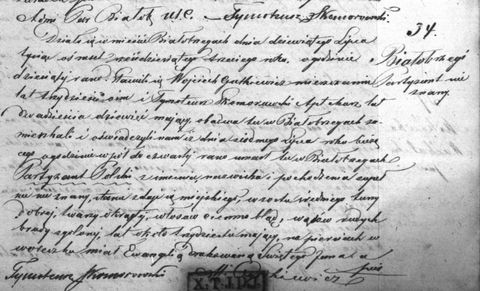 Adm: Par Białob. U.S.C. Tymoteusz Skomorowski.
34.
Białobrzegi
Partyzant nie
znany.
Działo się w mieście Białobrzegach dnia dziewiątego Lipca
tysiąc osmset sześćdziesiątego trzeciego roku, o godzinie
dziesiątej rano. Stawili się Wojciech Gutkiewicz mieszczanin
lat trzydzieści ośm i Tymoteusz Skomorowski Aptekarz, lat
dwadzieścia dziewięć mający, obadwa tu w Białobrzegach za-
mieszkali i oświadczyli nam iż dnia siódmego Lipca roku bieżą-
cego o godzinie wpół do czwartej rano umarł tu w Białobrzegach
Partyzant Polski z imienia, nazwiska i pochodzenia zupeł-
nie nie znany, stanu zdaje się miejskiego, wzrostu średniego, tuszy
dobrej, twarzy okrągłej, włosów ciemno bląd, wąsów rudych
brody golonej, lat około trzydzieści mający, na piersiach w
woreczku miał Ewangelią drukowaną Świętego Jana a
Tymoteusz Skomorowski
X.T.I.D.I